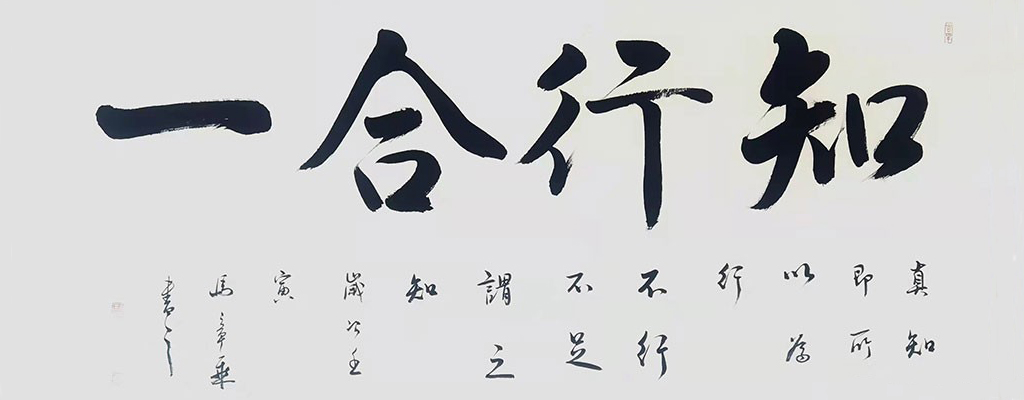 知行合一
真知
即所
以為
行
不行
不足
謂之
知
歲次壬
寅
馬章
書之